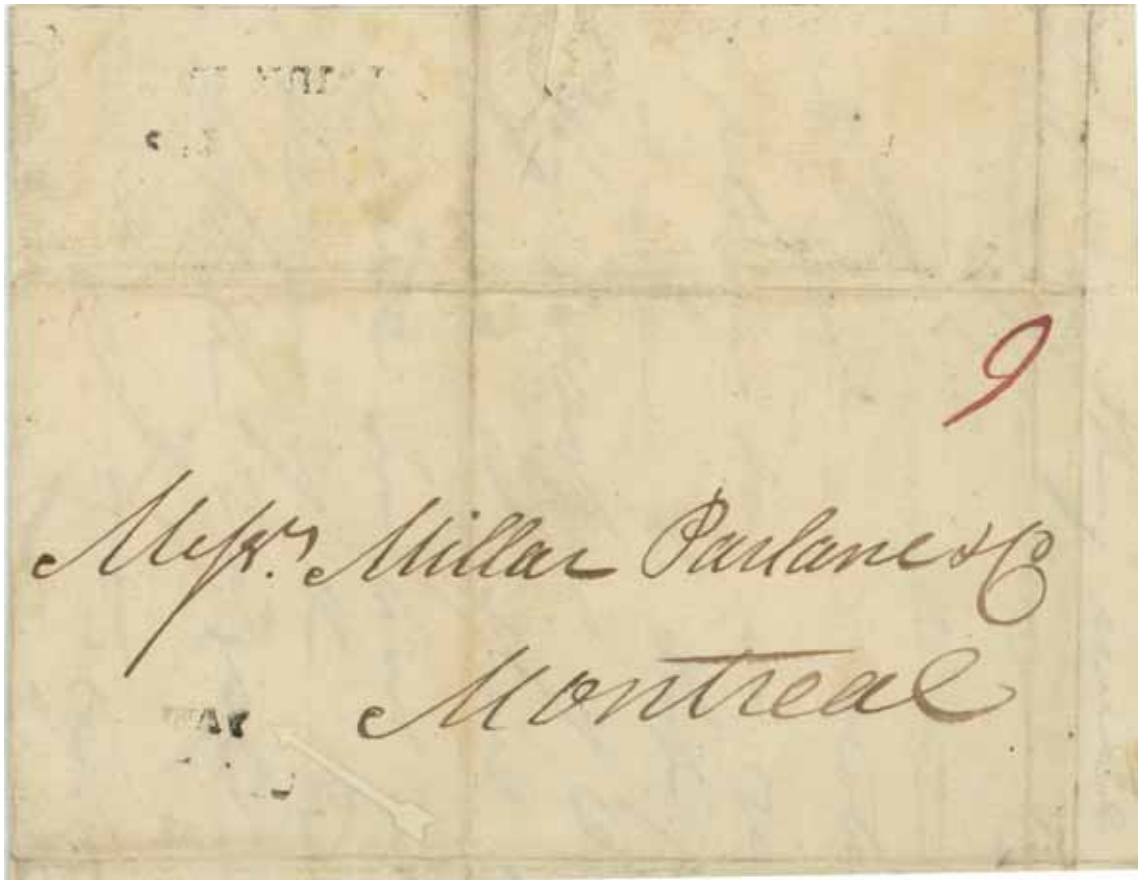 9
Messrs. Millar Parlane & Co
Montreal